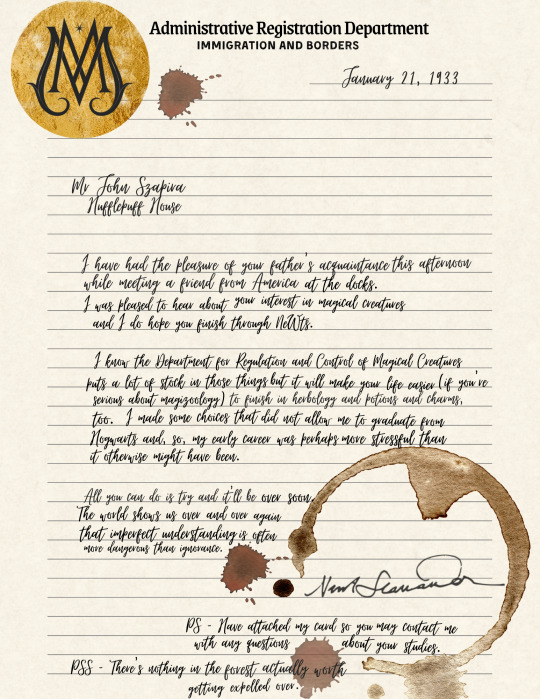 Administrative Registration Department
IMMIGRATION AND BORDERS
January 21, 1933
Mr John Szapira
Hufflepuff House
I have had the pleasure of your father's acquaintance this afternoon
while meeting a friend from America at the docks.
I was pleased to hear about your interest in magical creatures
and I do hope you finish through NeWts.
I know the Department for Regulation and Control of Magical Creatures
puts a lot of stock in those things but it will make your life easier (if you're
serious about magizoology) to finish in herbology and potions and charms,
too. I made some choices that did not allow me to graduate from
Hogwarts and, so, my early career was perhaps more stressful than
it otherwise might have been.
All you can do is try and it'll be over soon.
The world shows us over and over again
that imperfect understanding is often
more dangerous than ignorance.
Newt Scamander
PS - Have attached my card so you may contact me
with any questions about your studies.
PSS - There's nothing in the forest actually worth
getting expelled over.